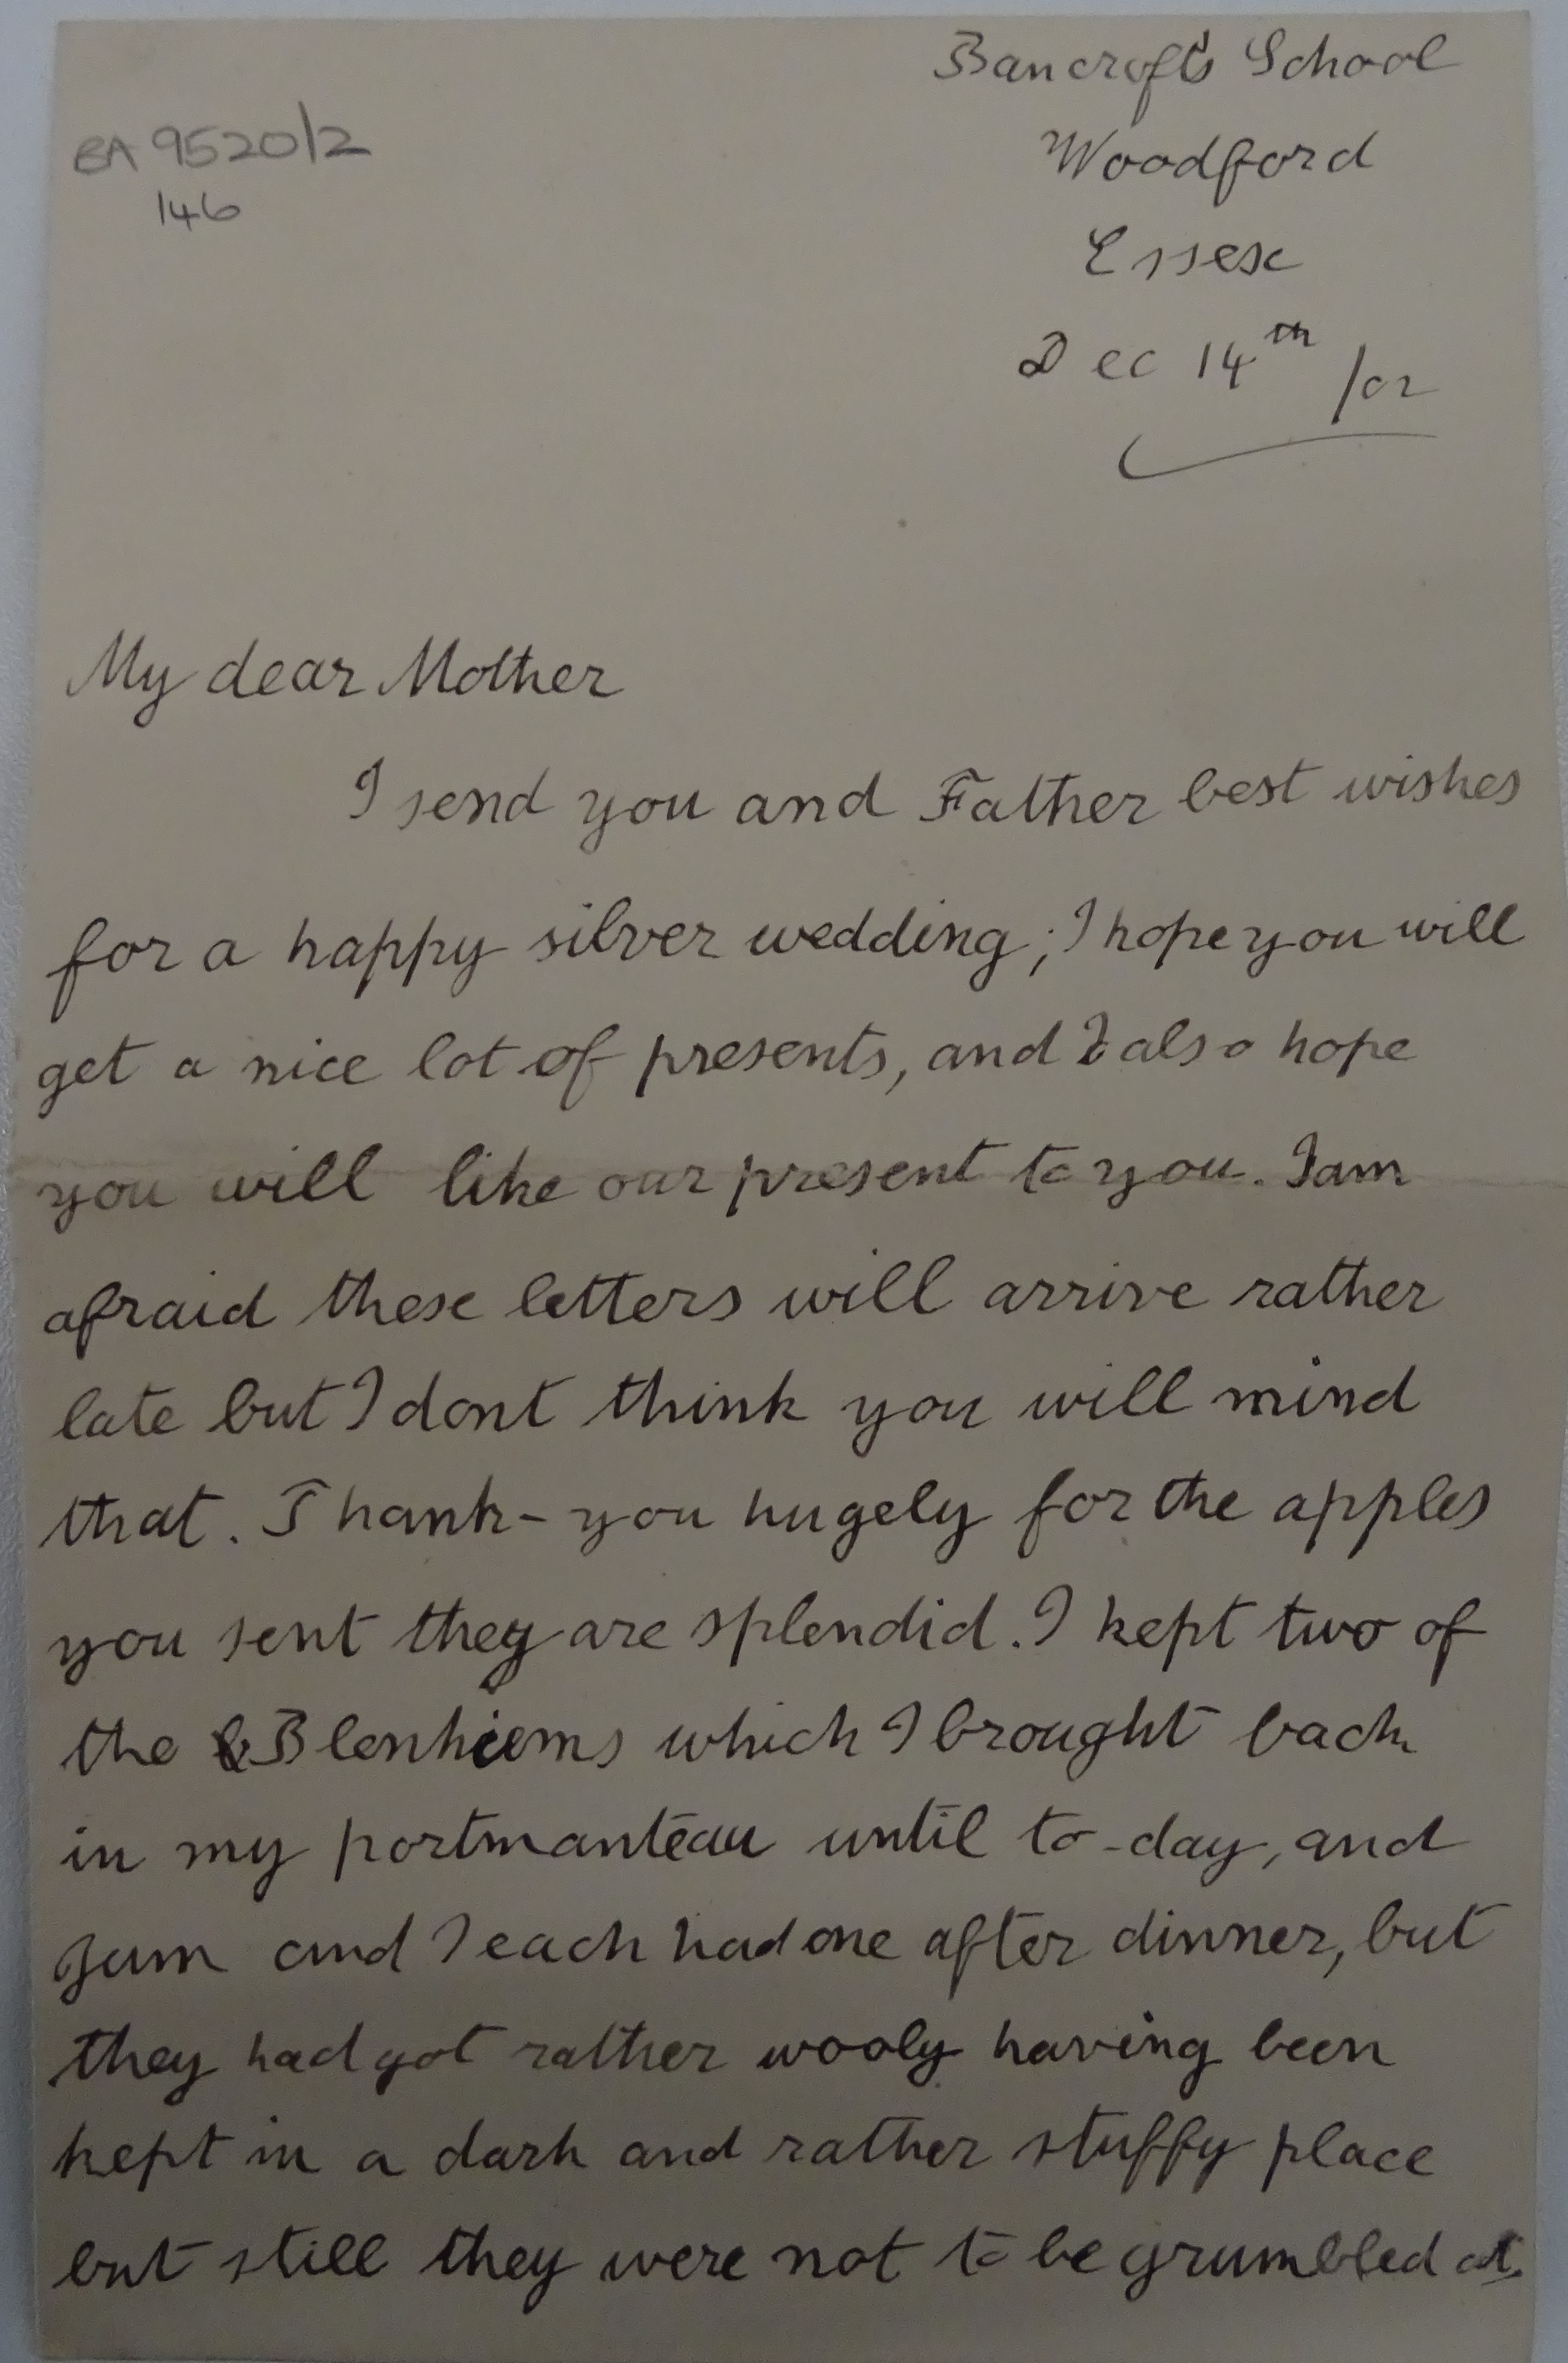 Bancroft's School
BA 9520/2
Woodford
146
Essex
Dec 14th /02
My dear Mother
I send you and Father best wishes
for a happy silver wedding; I hope you will
get a nice lot of presents, and I also hope
you will like our present to you. I am
afraid these letters will arrive rather
late but I dont think you will mind
that. Thank-you hugely for the apples
you sent they are splendid. I kept two of
the Blenhiems which I brought back
in my portmanteau until to-day, and
Jum and I each had one after dinner, but
they had got rather wooly having been
kept in a dark and rather stuffy place
but still they were not to be grumbled at.